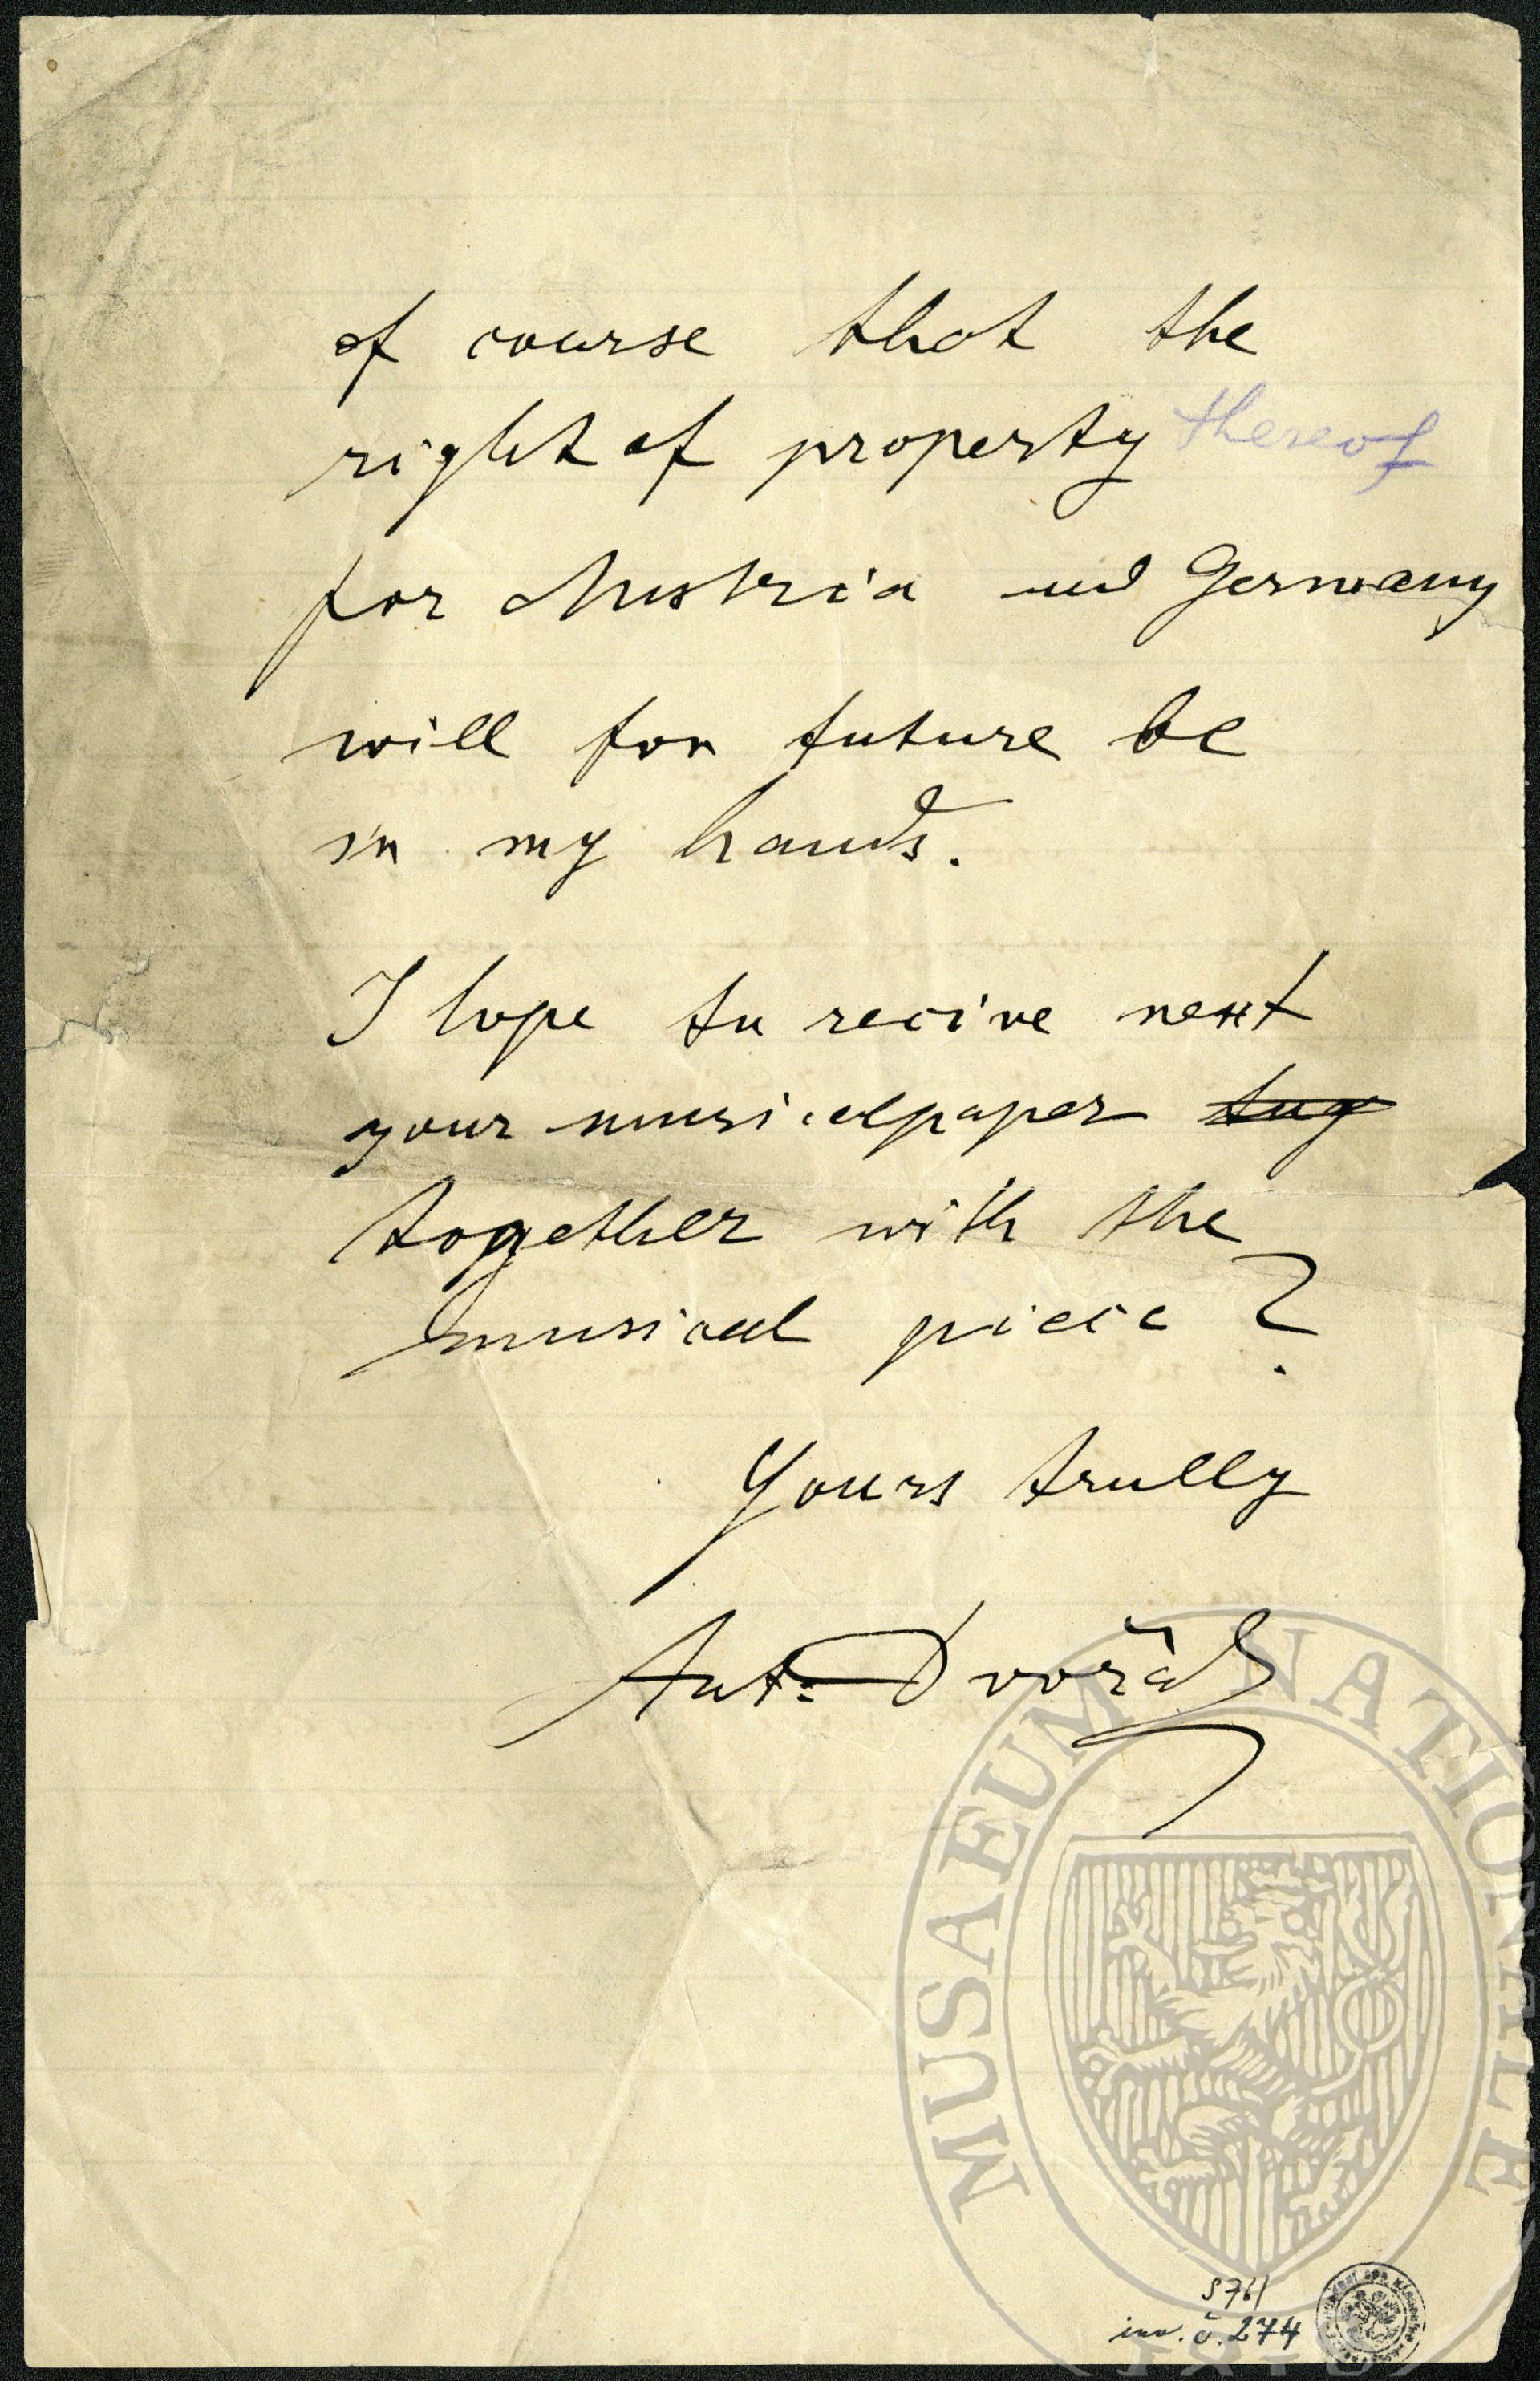 of course that the
right of property thereof
for Austria and Germany
will for future be
in my hands.
I hope to recive next
your musicalpaper tug
together with the
musical piece?
Yours trully
Ant. Dvořák
MUSAEUM NATIONALE
S 76/
inv. č. 274
1818